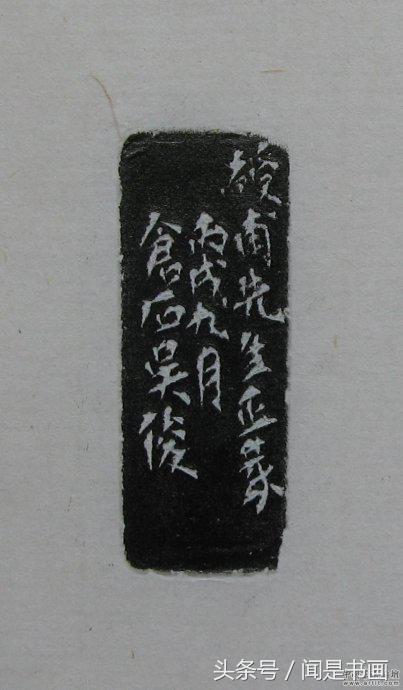 甫先生正篆
丙戌九月
倉石吳俊
头条号 / 闻是书画